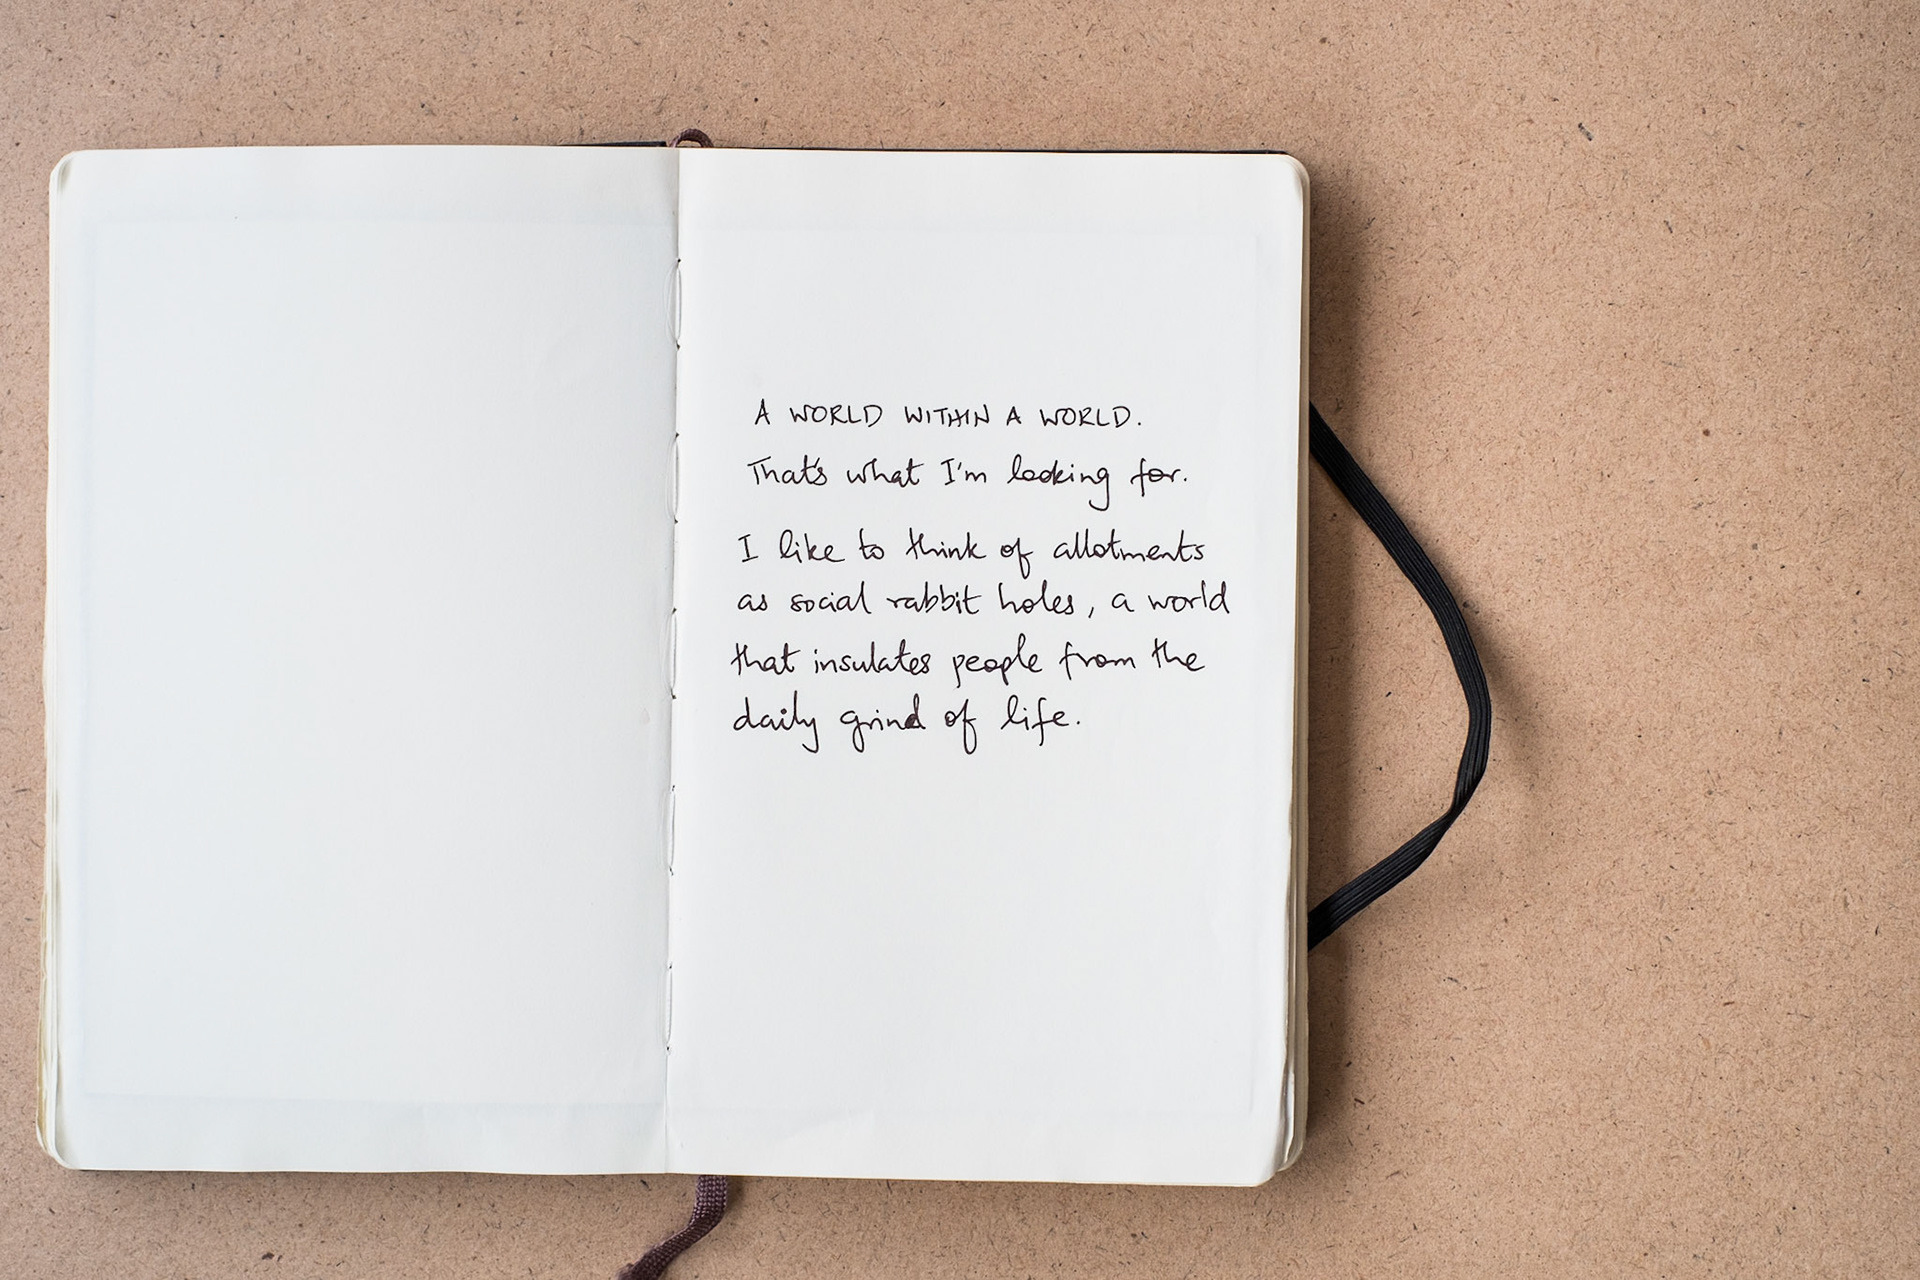 A WORLD WITHIN A WORLD.
That's what I'm looking for.
I like to think of allotments
as social rabbit holes, a world
that insulates people from the
daily grind of life.